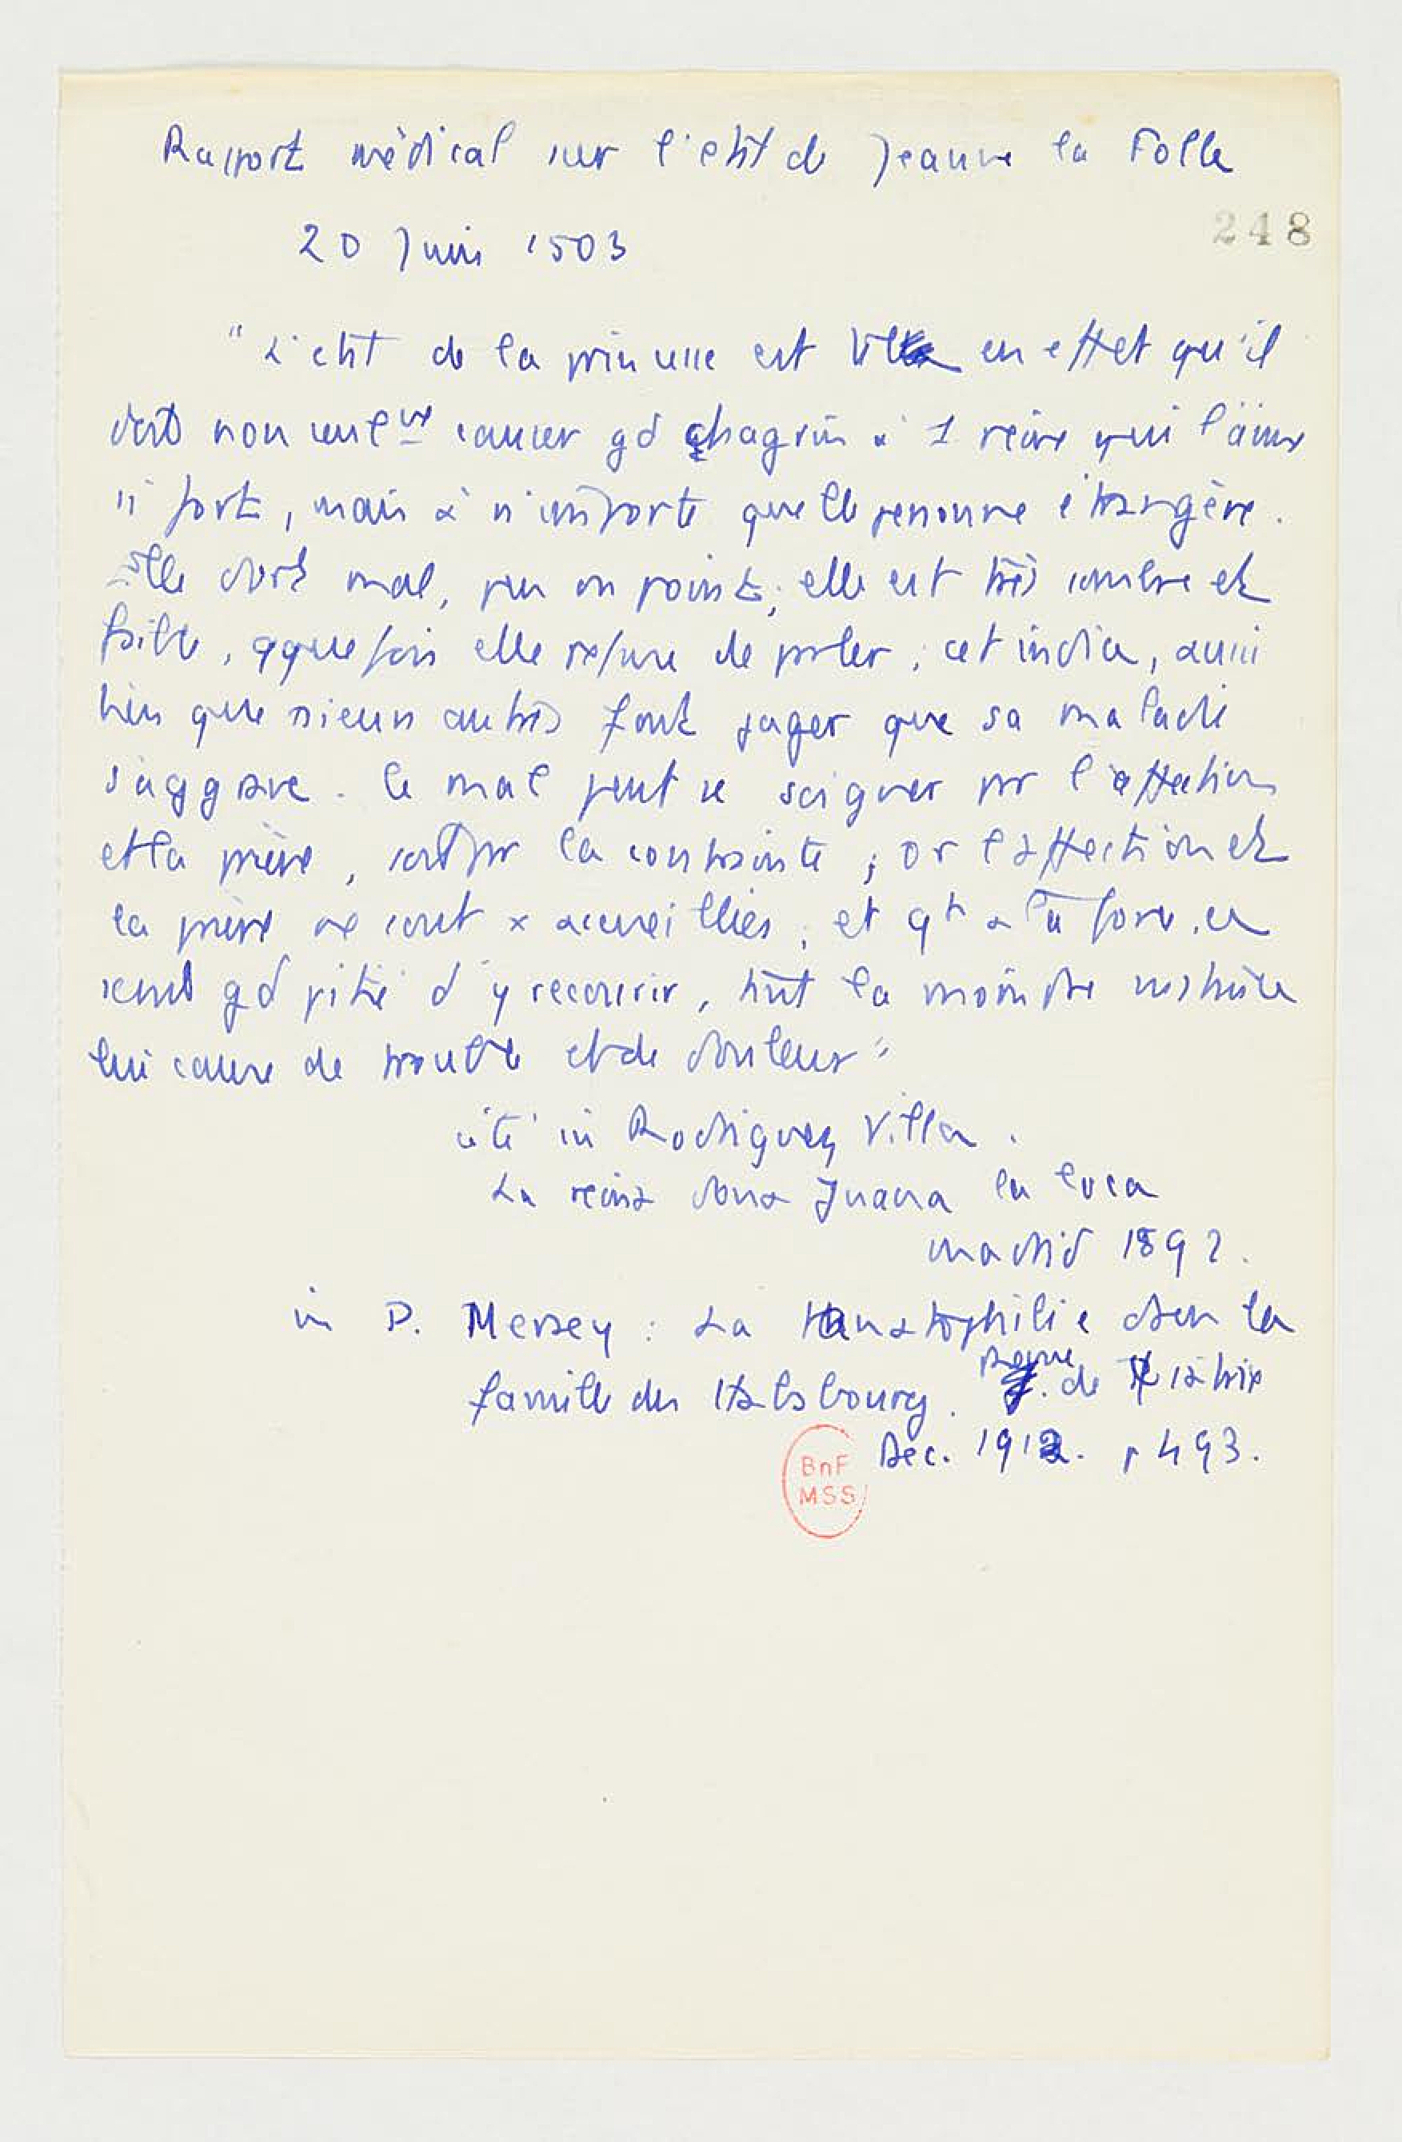 Rapport médical sur l'état de Jeanne la Folle
248
20 Juin 1503
"L'état de la princesse est tel en effet qu'il
doit non seulem^nt causer gd chagrin à 1 reine qui l'aime
si fort, mais à n'importe quelle personne étrangère.
Elle dort mal, peu ou point; elle est très sombre et
faible, qquefois elle refuse de parler; cet indice, aussi
bien que +sieurs autres font juger que sa maladie
s'aggrave. Ce mal peut se soigner par l'affection
et la prière, soit par la contrainte; or l'affection et
la prière ne sont x accueillies; et qt à la force, ce
serait gd pitié d'y recourir, tant la moindre
lui cause de trouble et de douleur"
cité in Rodriguez Villa.
La reina dona Juana la loca
Madrid 1892.
in P. Mersey: La thanatophilie dans la
famille des Habsbourg. Revue de Psiatrie
Dec. 1912. p 493.
BnF
MSS